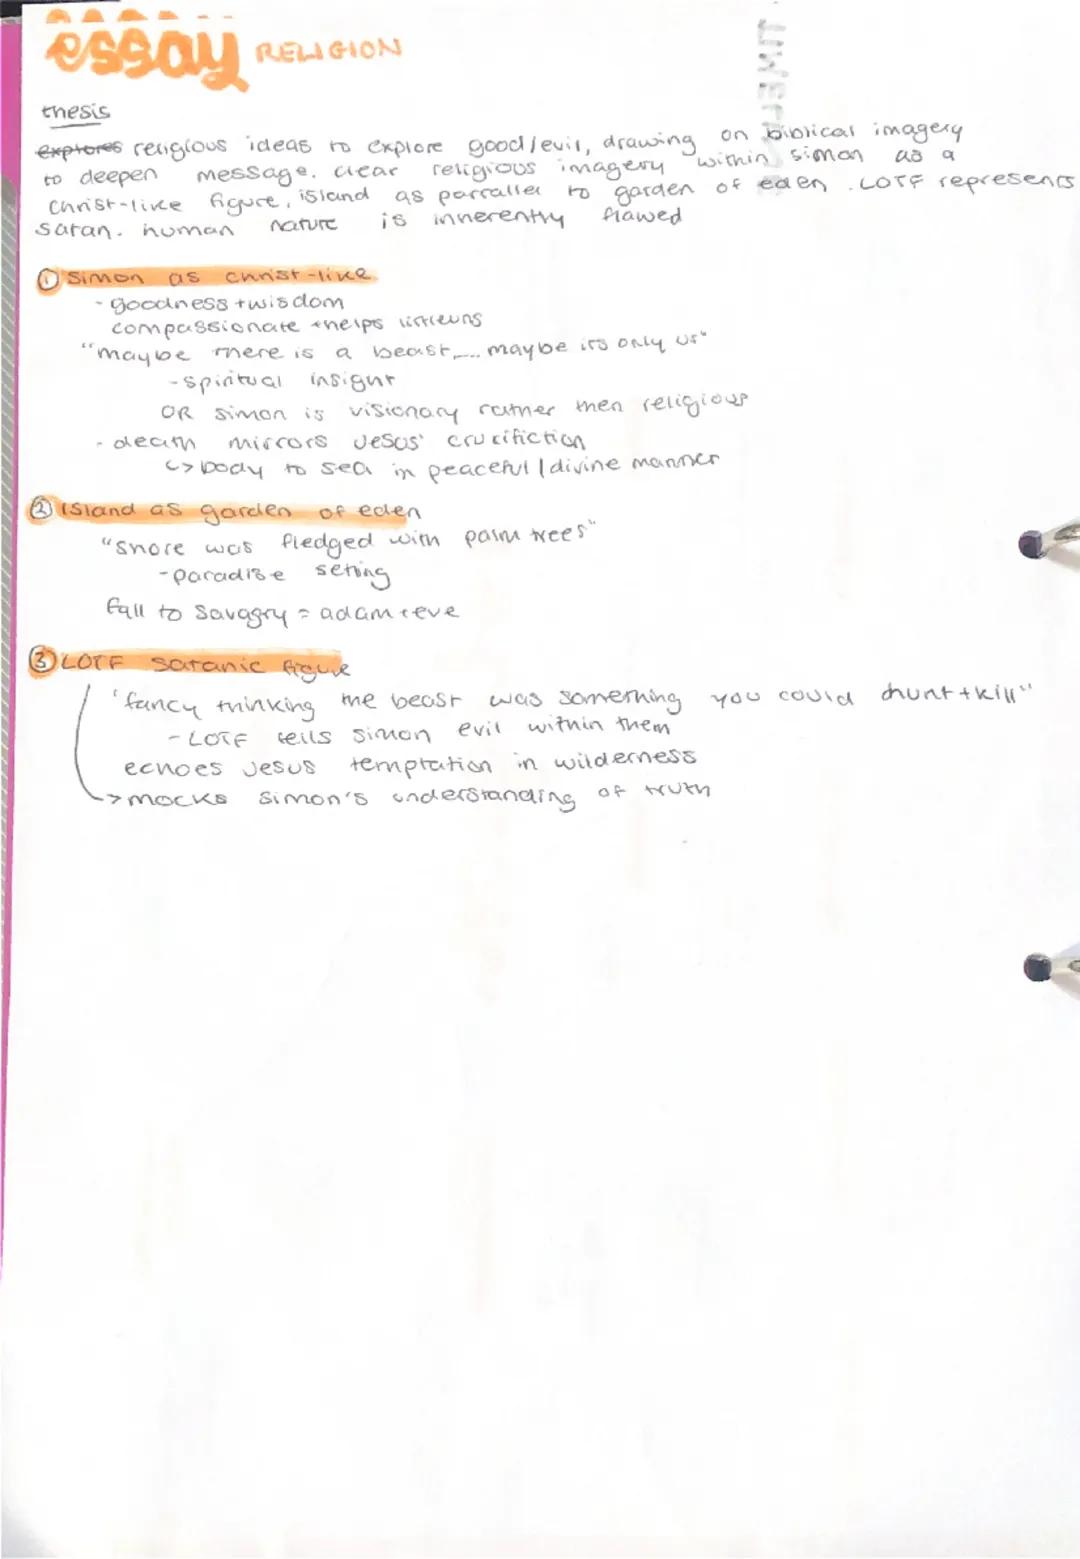 essay RELIGION
thesis
explores religious ideas to explore good/evil, drawing on biblical imagery
to deepen message. clear religious imagery within simon as a
Christ-like figure, island as parrallel to garden of eden. LOTF represents
satan. human nature is inherently flawed
① Simon as christ-like
- goodness + wisdom
compassionate + helps littleuns
"maybe there is a beast.... maybe its only us"
- spiritual insight
OR simon is visionary rather then religious
- death mirrors Jesus' crucifiction
↳ body to sea in peaceful / divine manner
② island as garden of eden
"shore was fledged with palm trees"
- paradise seting
fall to savagry = adam + eve
③ LOTF satanic figure
'fancy thinking the beast was something you could hunt + kill"
- LOTF tells simon evil within them
echoes Jesus temptation in wilderness
→ mocks simon's understanding of truth